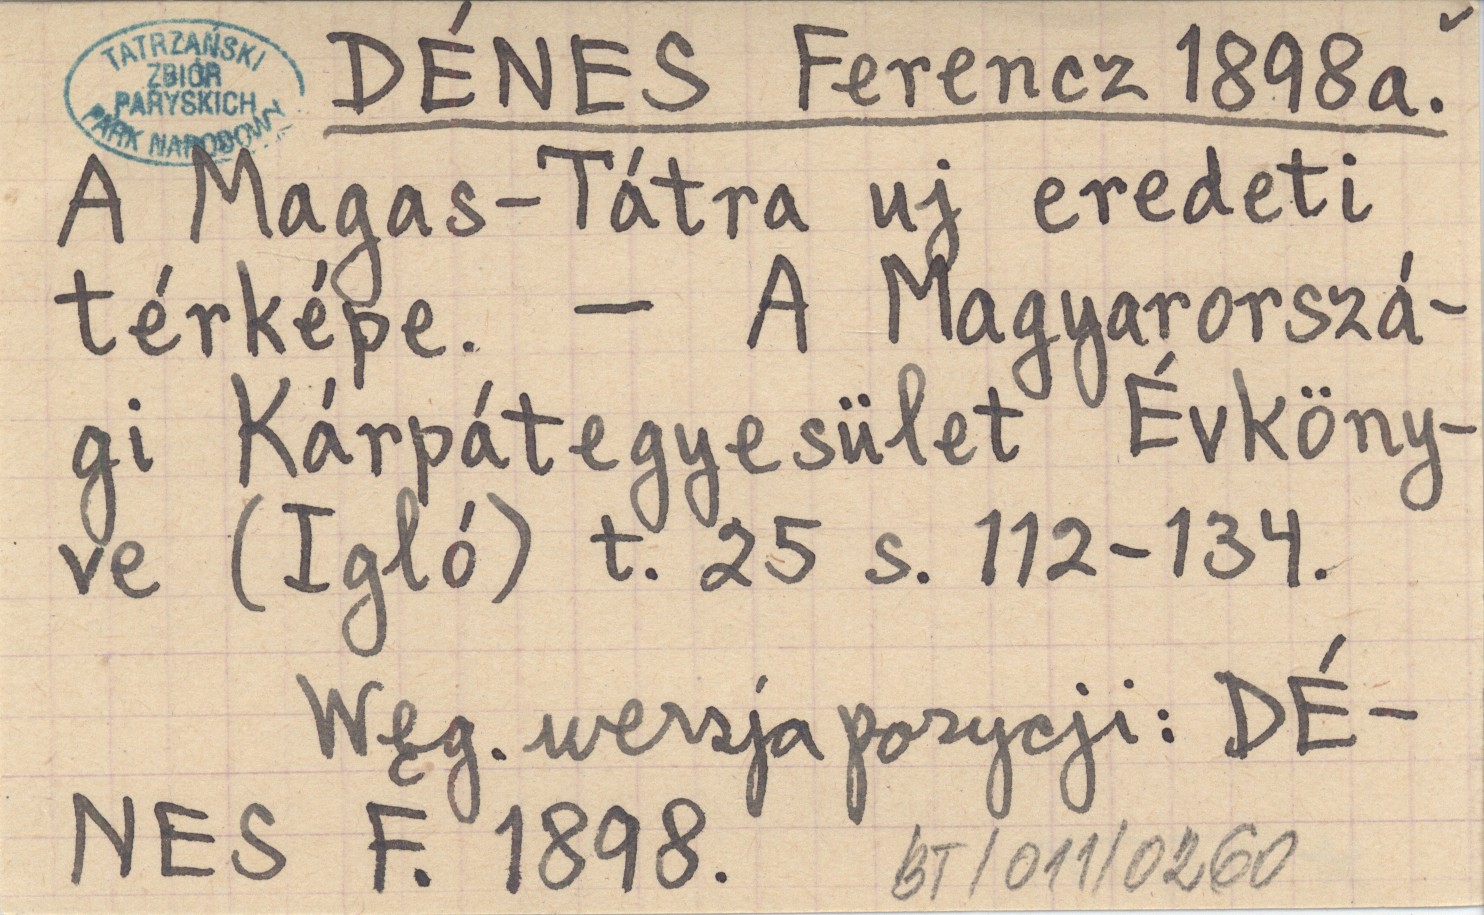 TATRZAŃSKI
ZBIÓR
PARYSKICH
PARK NARODOWY
DÉNES Ferencz 1898a.
A Magas-Tátra uj eredeti
térképe. — A Magyarorszá-
gi Kárpátegyesület Évköny-
ve (Igló) t. 25 s. 112-134.
Węg. wersja pozycji: DÉ-
NES F. 1898.
BT/011/0260